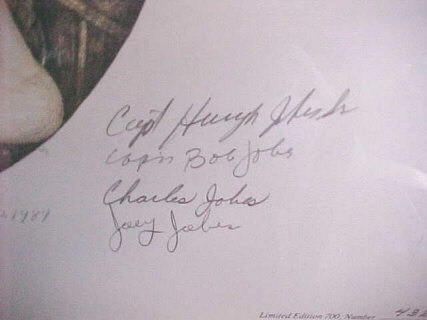 Capt Hugh
Bob Jobes
Charles Jobes
Joey Jobes
1989
Limited Edition 700, Number